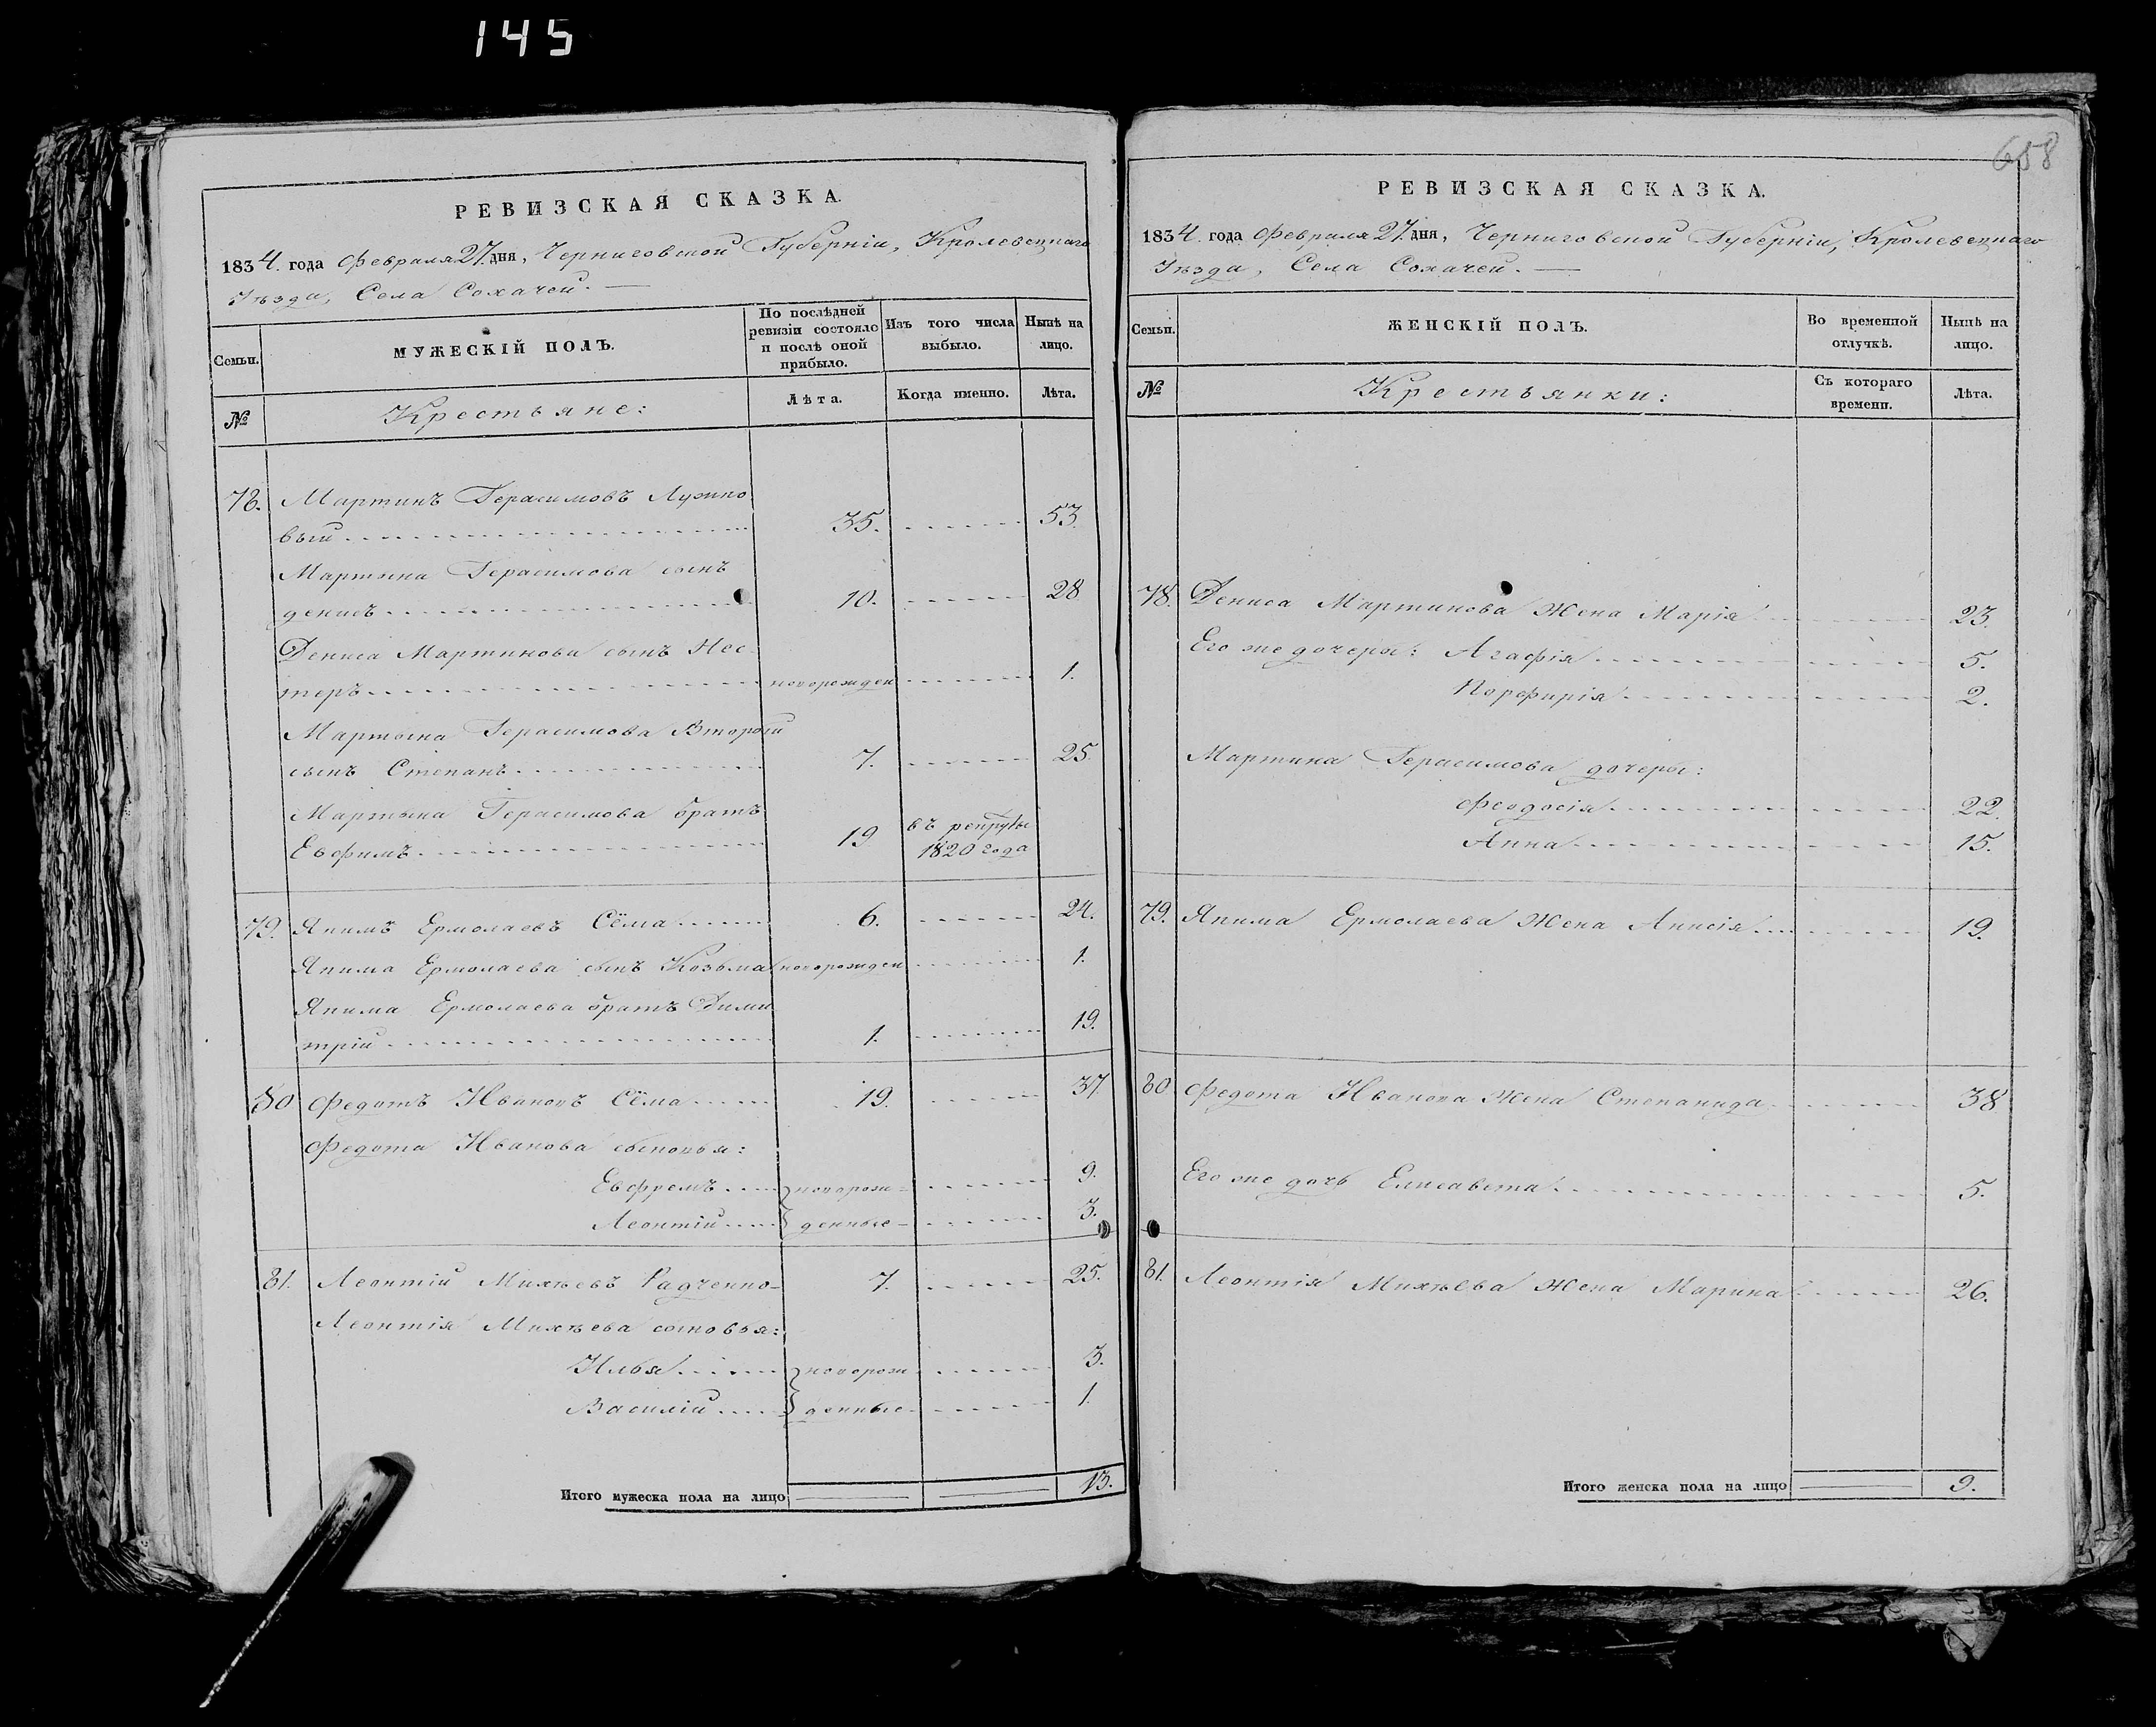 145
658
РЕВИЗСКАЯ СКАЗКА.
1834. года Февраля 27. дня, Черниговской Губерніи, Кролевецкаго
Уѣзда, Села Сохачей. —
Семьи.
МУЖЕСКІЙ ПОЛЪ.
По послѣдней
ревизіи состояло
и послѣ оной
прибыло.
Изъ того числа
выбыло.
Нынѣ на
лицо.
№
Крестьяне:
Лѣта.
Когда именно.
Лѣта.
78. Мартинъ Герасимовъ
вый 35. 53.
Мартина Герасимова сынъ
денисъ 10. 28
Дениса Мартинова сынъ Нес-
теръ новорожден 1.
Мартына Герасимова Второй
сынъ Степанъ 7. 25.
Мартына Герасимова братъ
Евфимъ 19 въ рекруты
1820 года
79. Якимъ Ермолаевъ Сёма 6. 24.
Якима Ермолаева сынъ Козьма новорожден 1.
Якима Ермолаева братъ Дими
трій 1. 19.
80 Федотъ Ивановъ Сёма 19. 37.
Федота Иванова сыновья:
Евфремъ новорож- 9.
Леонтій денные 3.
81. Леонтій Михѣевъ Радченко 7. 25.
Леонтія Михѣева сыновья:
Илья новорож 3.
Василій денные 1.
Итого мужеска пола на лицо 13.
РЕВИЗСКАЯ СКАЗКА.
1834. года Февраля 27. дня, Черниговской Губерніи, Кролевецкаго
Уѣзда, Села Сохачей. —
Семьи.
ЖЕНСКІЙ ПОЛЪ.
Во временной
отлучкѣ.
Нынѣ на
лицо.
№
Крестьянки:
Съ котораго
времени.
Лѣта.
78. Дениса Мартинова Жена Марія 23.
Его же дочери: Агафія 5.
Порфирія 2.
Мартина Герасимова дочери:
Феодосія 22.
Анна 15.
79. Якима Ермолаева Жена Анисія 19.
80 Федота Иванова Жена Степанида 38
Его же дочь Елисавета 5.
81. Леонтія Михѣева Жена Марина 26.
Итого женска пола на лицо 9.